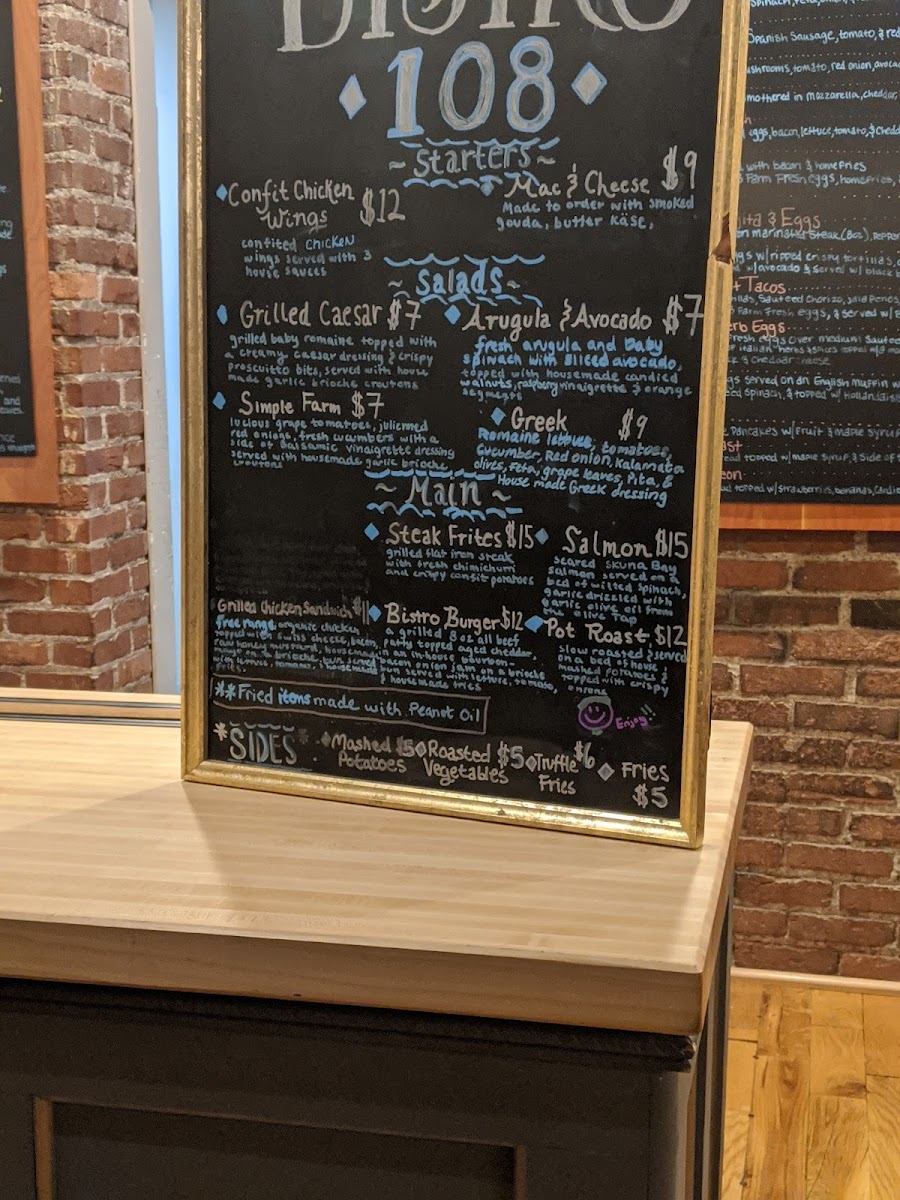 BISTRO
108
~ Starters ~
Confit Chicken
Wings $12
confited chicken
wings served with 3
house sauces
Mac & Cheese $9
Made to order with smoked
gouda, butter käse,
~ Salads ~
Grilled Caesar $7
grilled baby romaine topped with
a creamy caesar dressing & crispy
proscuitto bits, served with house
made garlic brioche croutons
Arugula & Avocado $7
fresh arugula and baby
spinach with sliced avocado,
topped with housemade candied
walnuts, raspberry vinaigrette & orange
segments
Simple Farm $7
lucious grape tomatoes, juliened
red onions, fresh cucumbers with a
side of Balsamic Vinaigrette dressing
served with housemade garlic brioche
croutons
Greek $9
Romaine lettuce, tomatoes,
Cucumber, Red onion, Kalamata
olives, Feta, grape leaves, Pita, &
House made Greek dressing
~ Main ~
Steak Frites $15
grilled flat iron steak
with fresh chimichurri
and crispy confit potatoes
Salmon $15
seared Skuna Bay
salmon served on a
bed of wilted spinach,
garlic drizzled with
garlic olive oil from
the olive tap
Grilled Chicken Sandwich $11
free range organic chicken
topped with swiss cheese, bacon,
honey mustard, housemade
on a brioche bun served
with lettuce, tomato, & housemade
fries
Bistro Burger $12
a grilled 8oz all beef
patty topped aged cheddar,
an in-house bourbon-
bacon onion jam on a brioche
bun served with lettuce, tomato,
& house made fries
Pot Roast $12
slow roasted & served
on a bed of house
mashed potatoes &
topped with crispy
onions
**Fried items made with Peanut Oil
Enjoy!!
*SIDES*
Mashed $5
Potatoes
Roasted $5
Vegetables
Truffle $6
Fries
Fries
$5
Spanish Sausage, tomato, & red
mushrooms, tomato, red onion, avocado
smothered in mozzarella, cheddar,
eggs, bacon, lettuce, tomato, & chedd
with bacon & homefries
Farm Fresh eggs, homefries,
& Eggs
marinated steak (8oz), pepper
w/ ripped crispy tortillas,
w/ avocado & served w/ black b
Tacos
sauteed chorizo,
Farm Fresh eggs, & served w/
Herb Eggs
Fresh eggs over medium saute
cheese
served on an English muffin w
spinach, & topped w/ Hollandais
Pancakes w/ Fruit & maple syrup
topped w/ maple syrup & side of
topped w/ strawberries, bananas, candie